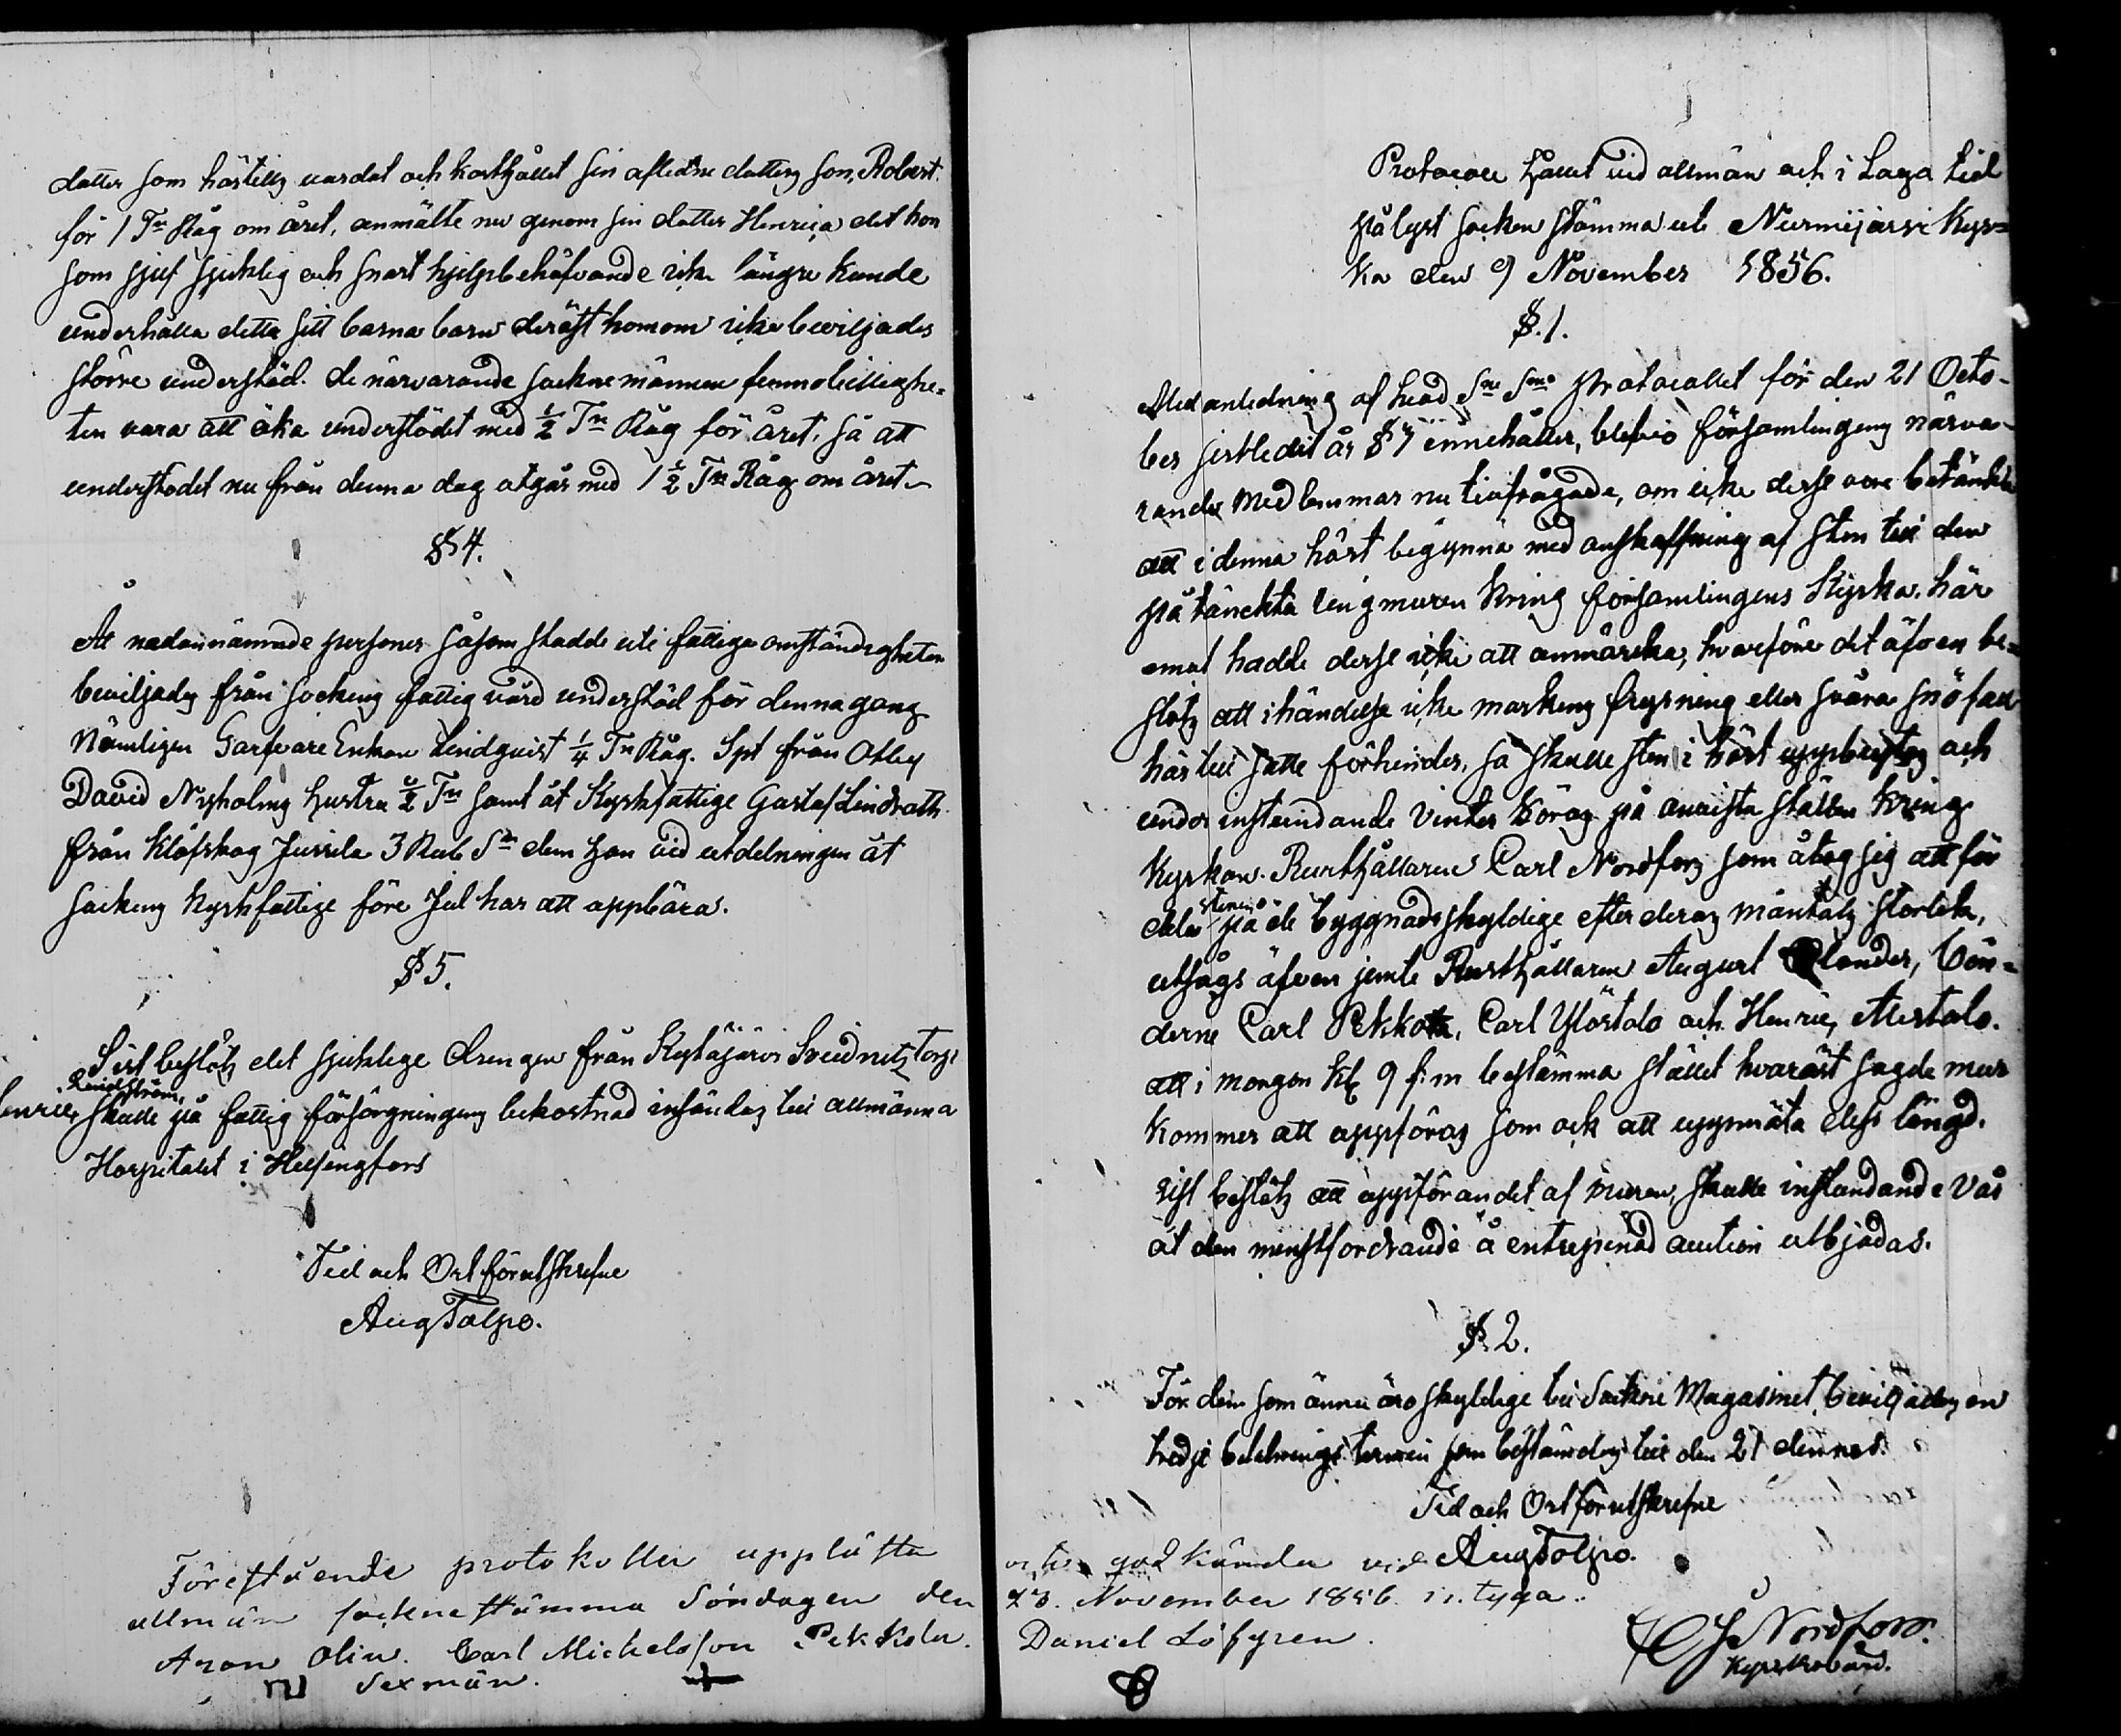 dotter som härtills vårdat och kosthållet sin aflidne dotters son, Robert
för 1 Tn Råg om året, anmälte nu genom sin dotter Henrica det hon
som sjelf sjuklig och snart hjelpbehöfvande icke längre kunde
underhålla detta sitt barna barn derest honom icke beviljades
större underståd. de närvarande sockne männen funno billighe-
ten vara att öka understödet med ½ Tn Råg för året, så att
understödet nu från denna dag utgår med 1 ½ Tn Råg om året.
§ 4.
Åt nedannämnde personer såsom stadde uti fattiga omständigheter
beviljades från sockens fattigvård understöd för denna gång
Nämligen Garfvare Enkan Lindqvist ¼ Tn Råg. Spt från Otby
David Nyholms hustru ½ Tn samt åt Kyrkfattige Gustaf Lindroth
från Klöfskog Jussila 3 Rub Sr dem han vid utdelningen åt
sockens kyrkfattige före Jul har att uppbära.
§ 5.
Sist beslöts det sjuklige drengen från Kytäjärvi Torp
Lindström,
Henric, skulle på fattig försörgningens bekostnad insändas till allmänna
Hospitalet i Helsingfors
Tid och Ort förutskrefne
Aug Tolpo.
Protocoll hållit vid allmän och i Laga tid
pålyst socken stämma uti Nurmijärvi Kyr-
ka den 9 November 1856.
§. 1.
Med anledning af hvad Sne Sme protocollet för den 21 Octo-
ber sistledit år § 7 innehåller, blefvo församlingens närva-
rande Medlemmar nu tillfrågade, om icke desse vore betänkte
att i denna höst begynna med anskaffning af sten till den
påtänckta ringmuren kring församlingens Kyrka. här
emot hadde desse icke att anmärcka, hvarföre det äfven be-
slöts att i händelse icke markens frysning eller svåra snöfall
härtill satte förhinder, så skulle sten i höst uppbrytas och
under instundande Vinter köras på anvista ställen kring
Kyrkan. Rusthållaren Carl Nordfors som åtog sig att för
stenen
dela på de byggnadsskyldige efter deras mantals storlek,
utsågs äfven jemte Rusthållaren August Olander, bön-
derne Carl Pekkola, Carl Ylöstalo och Henric Alestalo.
att i morgon Kl 9 f:m bestämma stället hvaräst sagde mur
kommer att uppföras som ock att uppmäta dess längd.
sist beslöts att uppförandet af muren, skulle instundande Vår
åt den minstfordrande å entreprenad auction utbjudas.
§ 2.
För dem som ännu äro skyldige till Sockne Magasinet, beviljades en
tredje betalnings termin som bestämdes till den 21 dennes.
Tid och Ort förutskrefne
Aug Tolpo.
Föreståënde protokoller upplästa och godkända vid
allmän sockne stämma Söndagen den 23. November 1856 intyga:
Aron Olin. Carl Michelsson Pekkola. Daniel Löfgren.
Sexmän.
Nordfors.
Kyrkovärd.